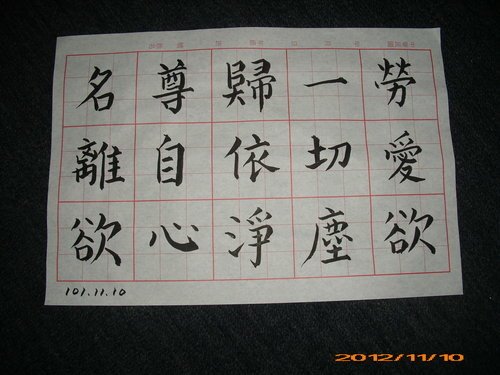 名離欲
尊自心
歸依淨
一切塵
勞愛欲
101.11.10
2012/11/10